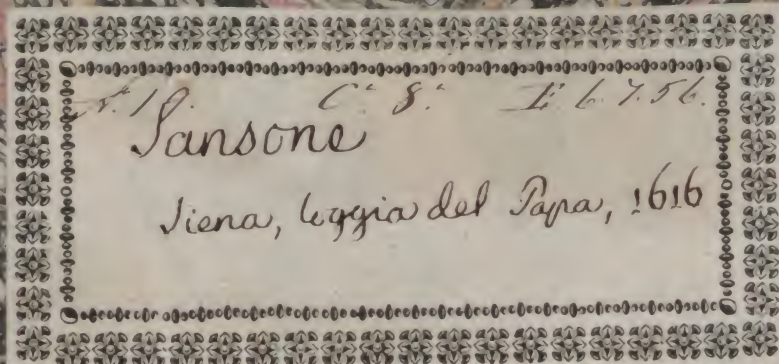 N. 1. C. 8. L. 6. 7. 56.
Sansone
Siena, loggia del Papa, 1616